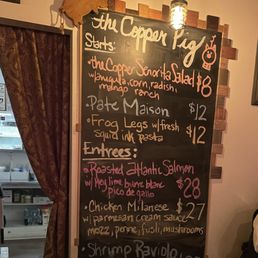 the Copper Pig
Starts:
• the Copper Senorita Salad $8
w/arugula, corn, radish,
mango ranch
• Pate Maison $12
• Frog Legs w/fresh $12
squid ink pasta
Entrees:
• Roasted atlantic Salmon
w/Key lime burre blanc $28
pico de gallo
• Chicken Milanese $27
w/parmesan cream sauce
mozz, penne, fusli, mushrooms
Shrimp Raviolo